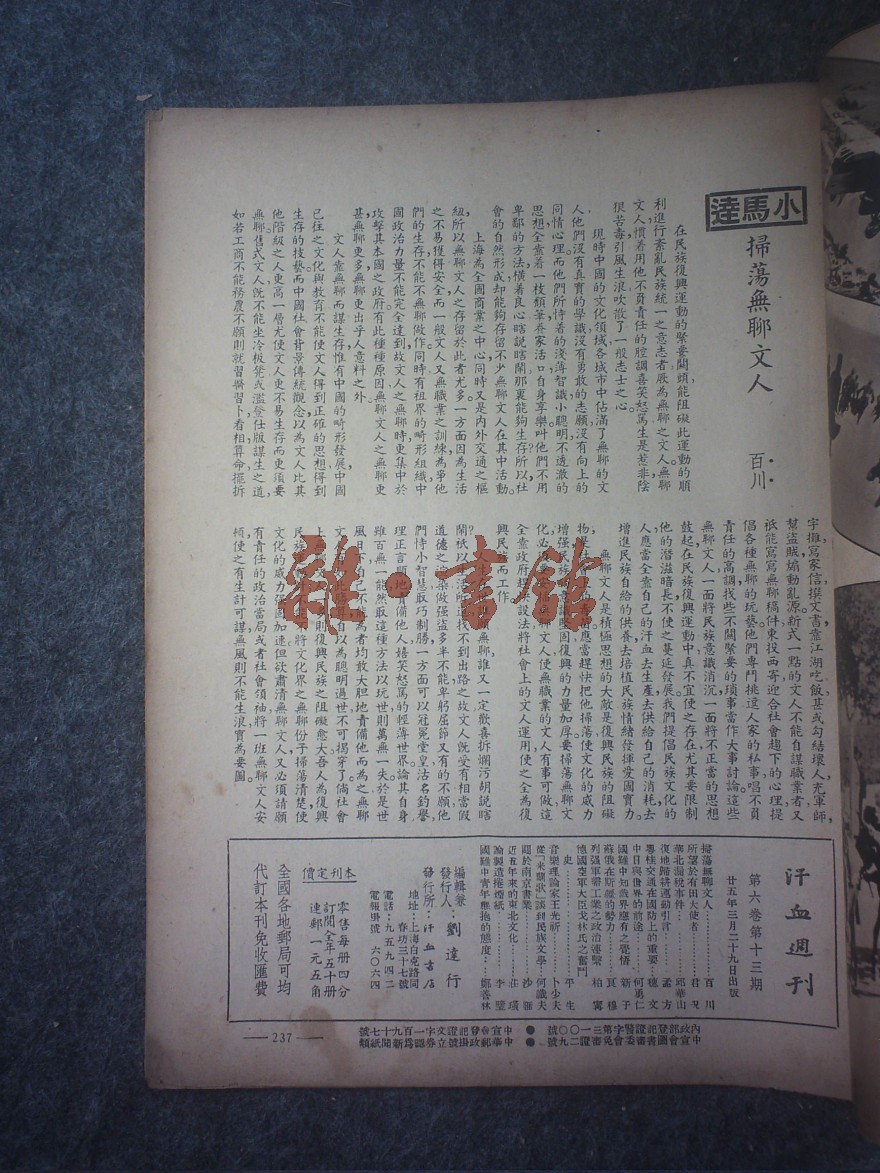 小馬達
掃蕩無聊文人
百川
在民族復興運動的緊要關頭能阻礙此運動的順
利進行紊亂民族統一之意志者厥為無聊之文人無聊
文人慣着用他不負責任的腔調喜笑怒罵生是惹非陰
狠苦毒引風生浪吹散了一般志士之心。
現時中國的文化領域各城市中佔滿了無聊的文
人他們沒有真實的學識沒有勇敢的志願沒有向上的
同情心理而他們所恃着的淺薄智識小聰明不透澈的
思想全靠着一枝頹筆養家活口自身享樂叫他們不用
卑鄙的方法橫着良心瞎說瞎鬧那裏能夠生存所以社
會的自然形成却能夠存留不少無聊文人在其中活動。
上海為全國商業之中心同時又是內外交通之樞
紐所以無聊文人之存留於此者尤多一方面因為生活
之不易獲得安全而一般文人又無職業之訓練為爭他
們的生存不能不無聊做作同時有租界的畸形組織中
國政治力量不能完全達到故文人之無聊時更集中於
攻擊其本國之政府有此種種原因無聊文人之無聊更
甚無聊更多無聊更出乎人意料之外。
文人靠無聊而謀生存惟有中國的畸形發展中國
已往之文化與教育不能使文人得到正確的思想得到
生存的技藝而中國社會背景傳統觀念以為文人比其
他階級之人更高一層尤使文人更不易生存而更須要
無聊舊式文人既不能坐冷板凳或濫登仕版謀生之道
如若工商不能務農不願則就習醫習卜看相算命擺拆
字攤寫家信撰文書靠江湖吃飯甚或勾結壞人充軍師,
幫盜賊煽動亂源新式一點的文人不能自謀職業者又
祇能寫寫無聊稿件東投西寄迎合社會趨下的心理提
倡各種無聊的玩藝他們專門挑逗人家的私事唱不負
責任的高調找些不關緊要的瑣事當作大事討論這些
無聊文人一面將民族意識消沉一面將不正當的思想
鼓起在民族復興運動中真不宜使之存在尤其要限制
他的潛滋暗長不使之蔓延發展我們提倡民族文化的
人應當全靠自己的汗血去生產去供給自己的消耗去
增進民族自給的供養去培植民族情緒發揮愛國實力。
無聊文人是積極思想的大敵是復興民族的阻礙
應當趕快把他掃蕩使文化的威力
增強民族
復興的力量加厚要掃蕩無聊文
化必
無聊文人使無職業的文人有事可做這
全靠政府趕快設法將社會上的文人運用使之全為復
興民
而工作。
無聊誰又一定歡喜拆爛污胡說瞎
鬧祇以
找不到出路之故文人既受有相當假
道德之
做強盜多半不能卑躬屈節又有的不願他
們恃小智慧取巧制勝一方面可以冠冕堂皇沽名釣譽
理正言順地責備他人嬉笑怒罵的輕薄世界論其自身
雖百無一能然取這種方法以玩世則萬無一失於是世
風日下自己不能為者均敢大胆地責備他而為之無聊
文人
自以為聰明過世不可揭穿了倘社會
上無
則復興民族之阻礙愈大吾人為復興
民族
將文化界之無聊份子掃蕩清楚使
文化的威力强固加速但欲肅清無聊文人又必須請願
有責任的政治當局或者社會領袖將一班無聊文人安
頓使之有生計可謀無風則不能生浪實為要圖。
雜·書館
汗血週刊
第六卷第十三期
廿五年三月二十九日出版
掃蕩無聊文人……百川
所望於有田大使者……君況
華北漏稅事件……邱華山
復地歸耕運動引言……孟方
粵桂交通在國防上的重要……穗文
中日與世界的前途……何勇仁
國難中知識界應有之覺悟……新子
蘇俄在斯疆的勢力……莫穆
列强軍需工業之政治連繫……柏寗
德國空軍大臣戈林氏之奮鬥
史……平生
音樂理論家王光祈……卜少夫
從「米關歌」談到民族文學…何識夫
關於南京書業……沙駝
近五年來的東北文化……莊瑱
論製造捲煙紙……李璧
國難中青年應抱的態度……鄭善林
編輯兼
發行人:劉達行
發行所:汗血書店
地址:上海白克路同
春坊三十七號
電話:九五九四二
電報掛號 六〇六四
本刊定價
零售每冊四分
訂閱全年五十冊
連郵一元五角
全國各地郵局可均
代訂本刊免收匯費
內政部登記證警字第三一〇〇號 ● 中宣會登記證文字一百九十七號
中宣會圖書審委會免審證二九號 ● 中華郵政掛號立券認為新聞紙類
— 237 —